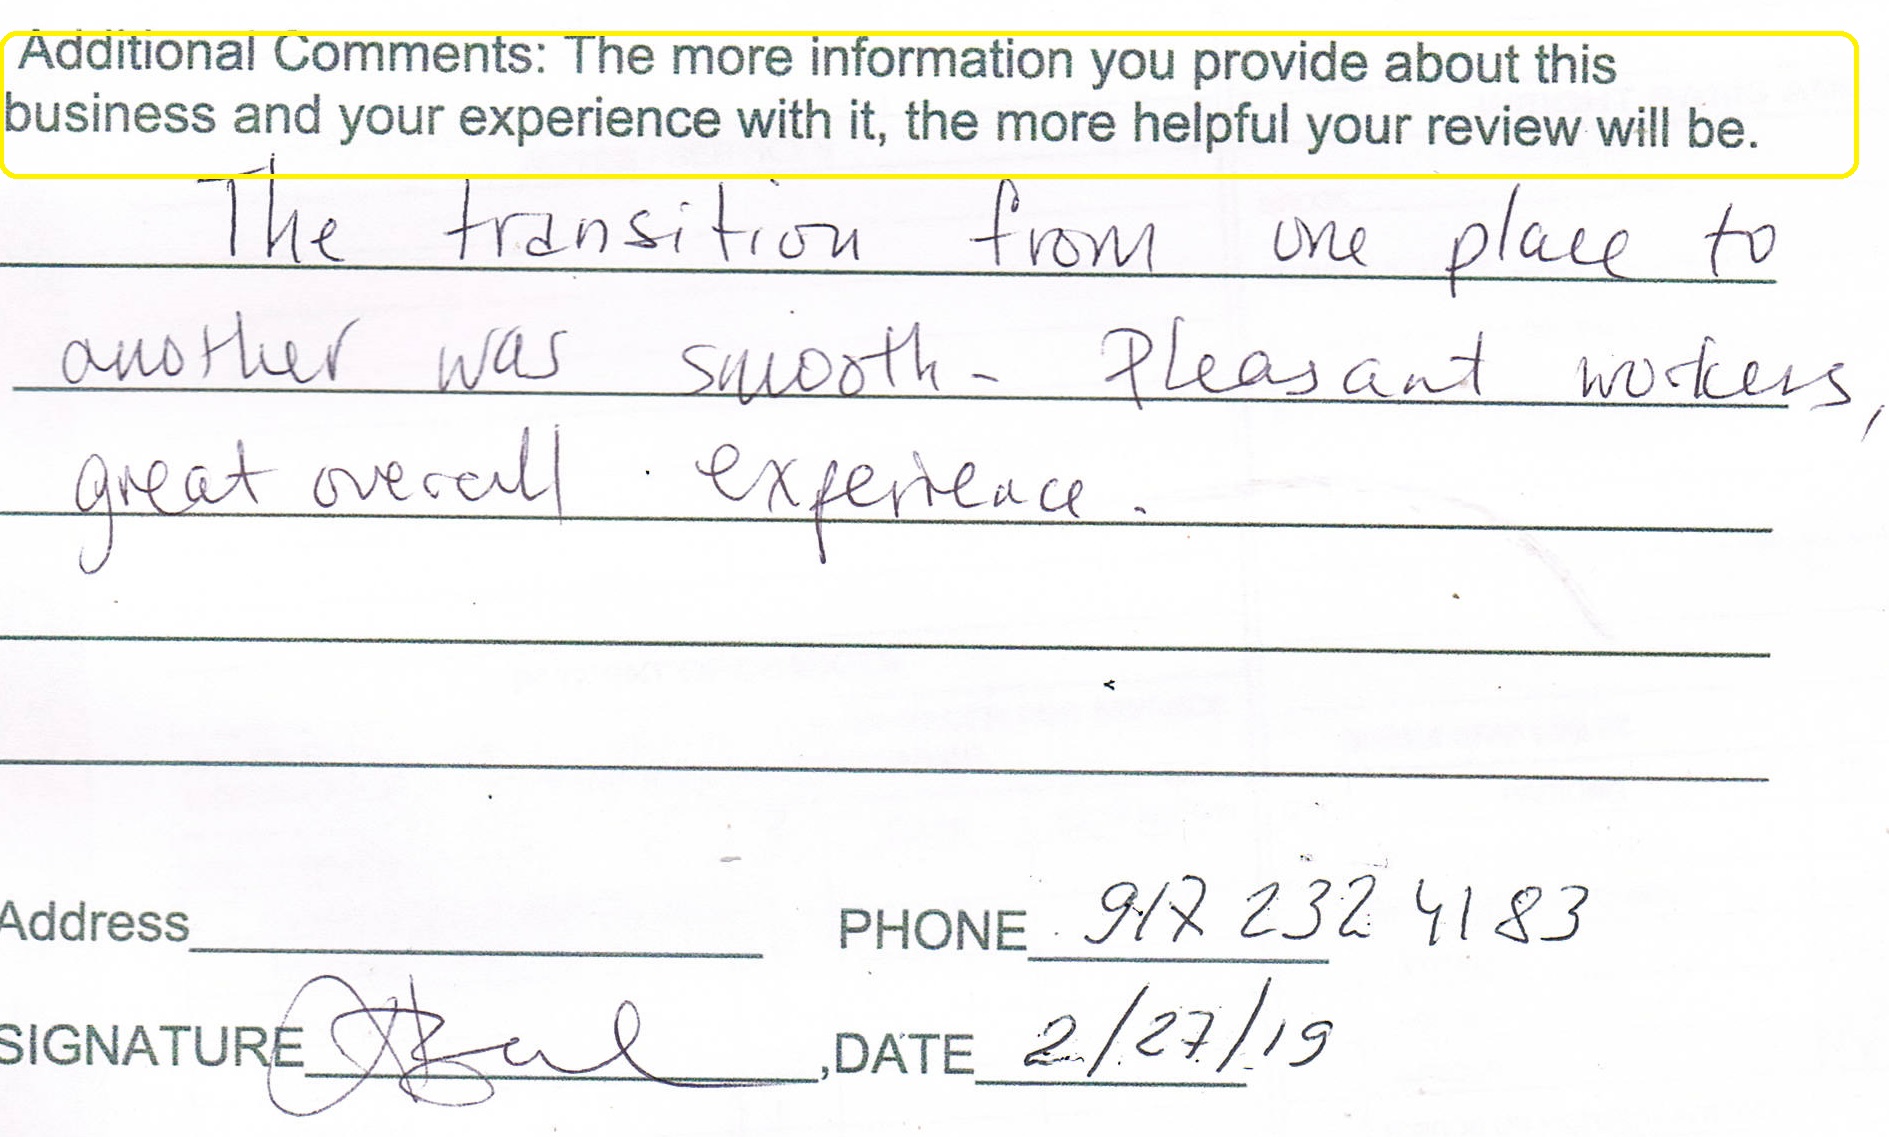 Additional Comments: The more information you provide about this
business and your experience with it, the more helpful your review will be.
The transition from one place to
another was smooth - Pleasant workers,
great overall experience.
Address PHONE 917 232 4183
SIGNATURE ,DATE 2/27/19